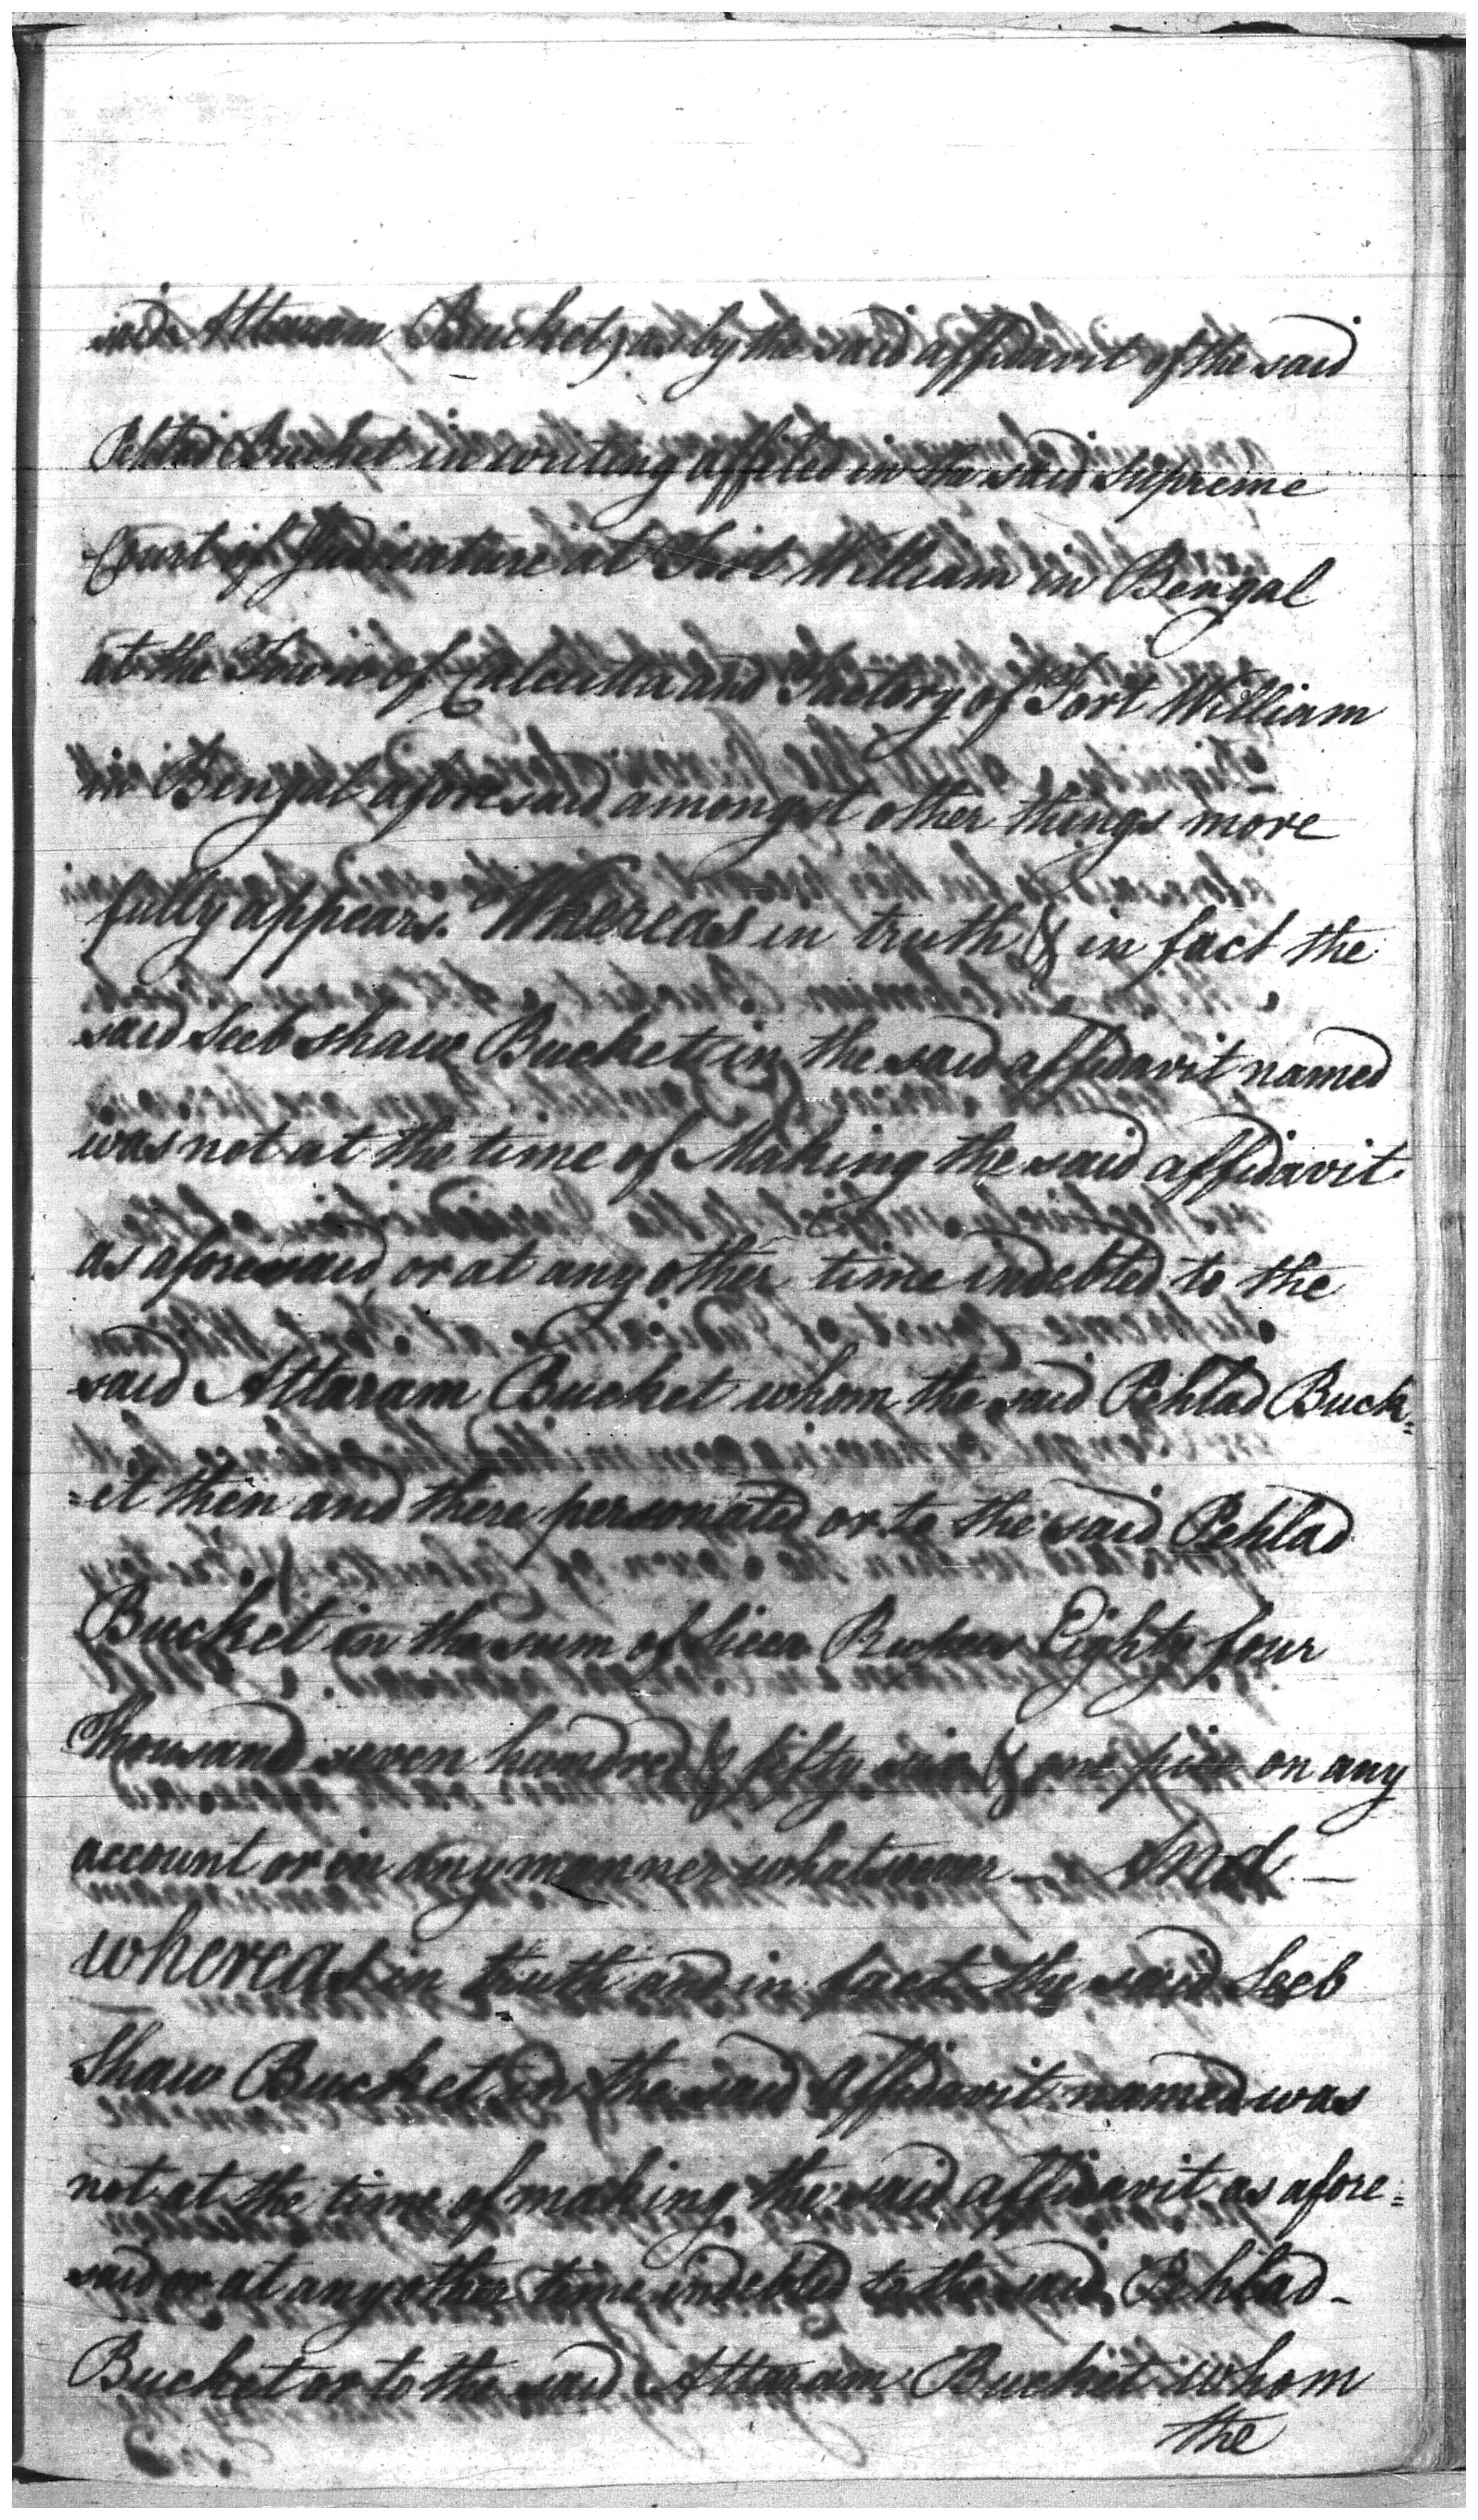 said Attaram Bucket, as by the said affidavit of the said
Pehlad Bucket in writing affiled in the said Supreme
Court of Judicature at Fort William in Bengal
at the Town of Calcutta and Factory of Fort William
in Bengal aforesaid amongst other things more
fully appears. Whereas in truth & in fact the
said Seeb shaw Bucket in the said affidavit named
was not at the time of Making the said affidavit
as aforesaid, or at any other time indebted to the
said Attaram Bucket whom the said Pehlad Buck=
=et then and there personated or to the said Pehlad
Bucket in the sum of Sicca Rupees Eighty four
Thousand seven hundred & fifty & one pice on any
account or in any manner whatsoever — And —
whereas in truth and in fact the said Seeb
Shaw Bucket in the said Affidavit named was
not at the time of making the said affidavit as afore=
said or at any other time indebted to the said Pehlad -
Bucket or to the said Attaram Bucket whom
the